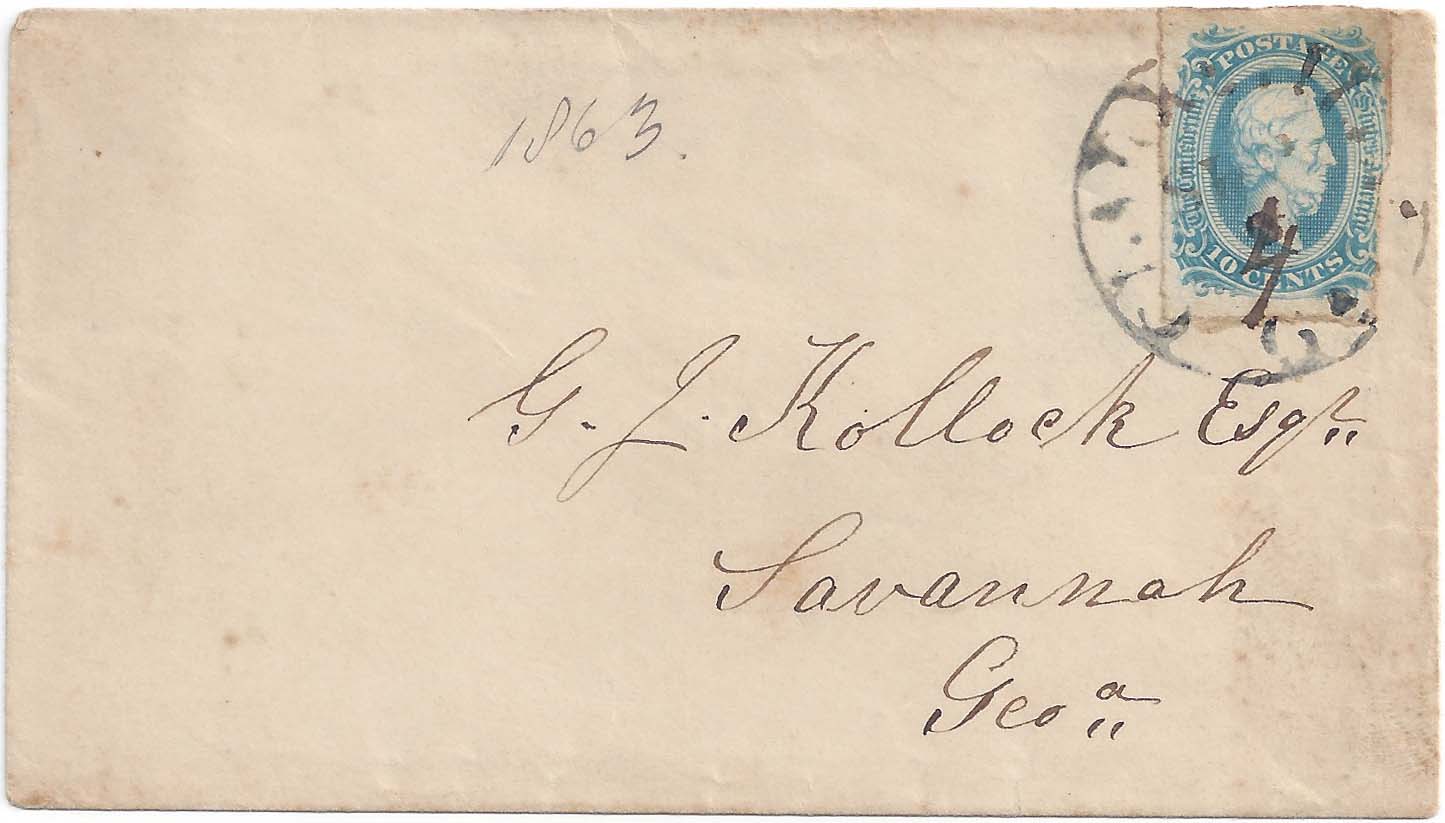 1863.
POSTAGE
The Confederate States of America
10 CENTS
G. J. Kollock Esqr
Savannah
Geoa